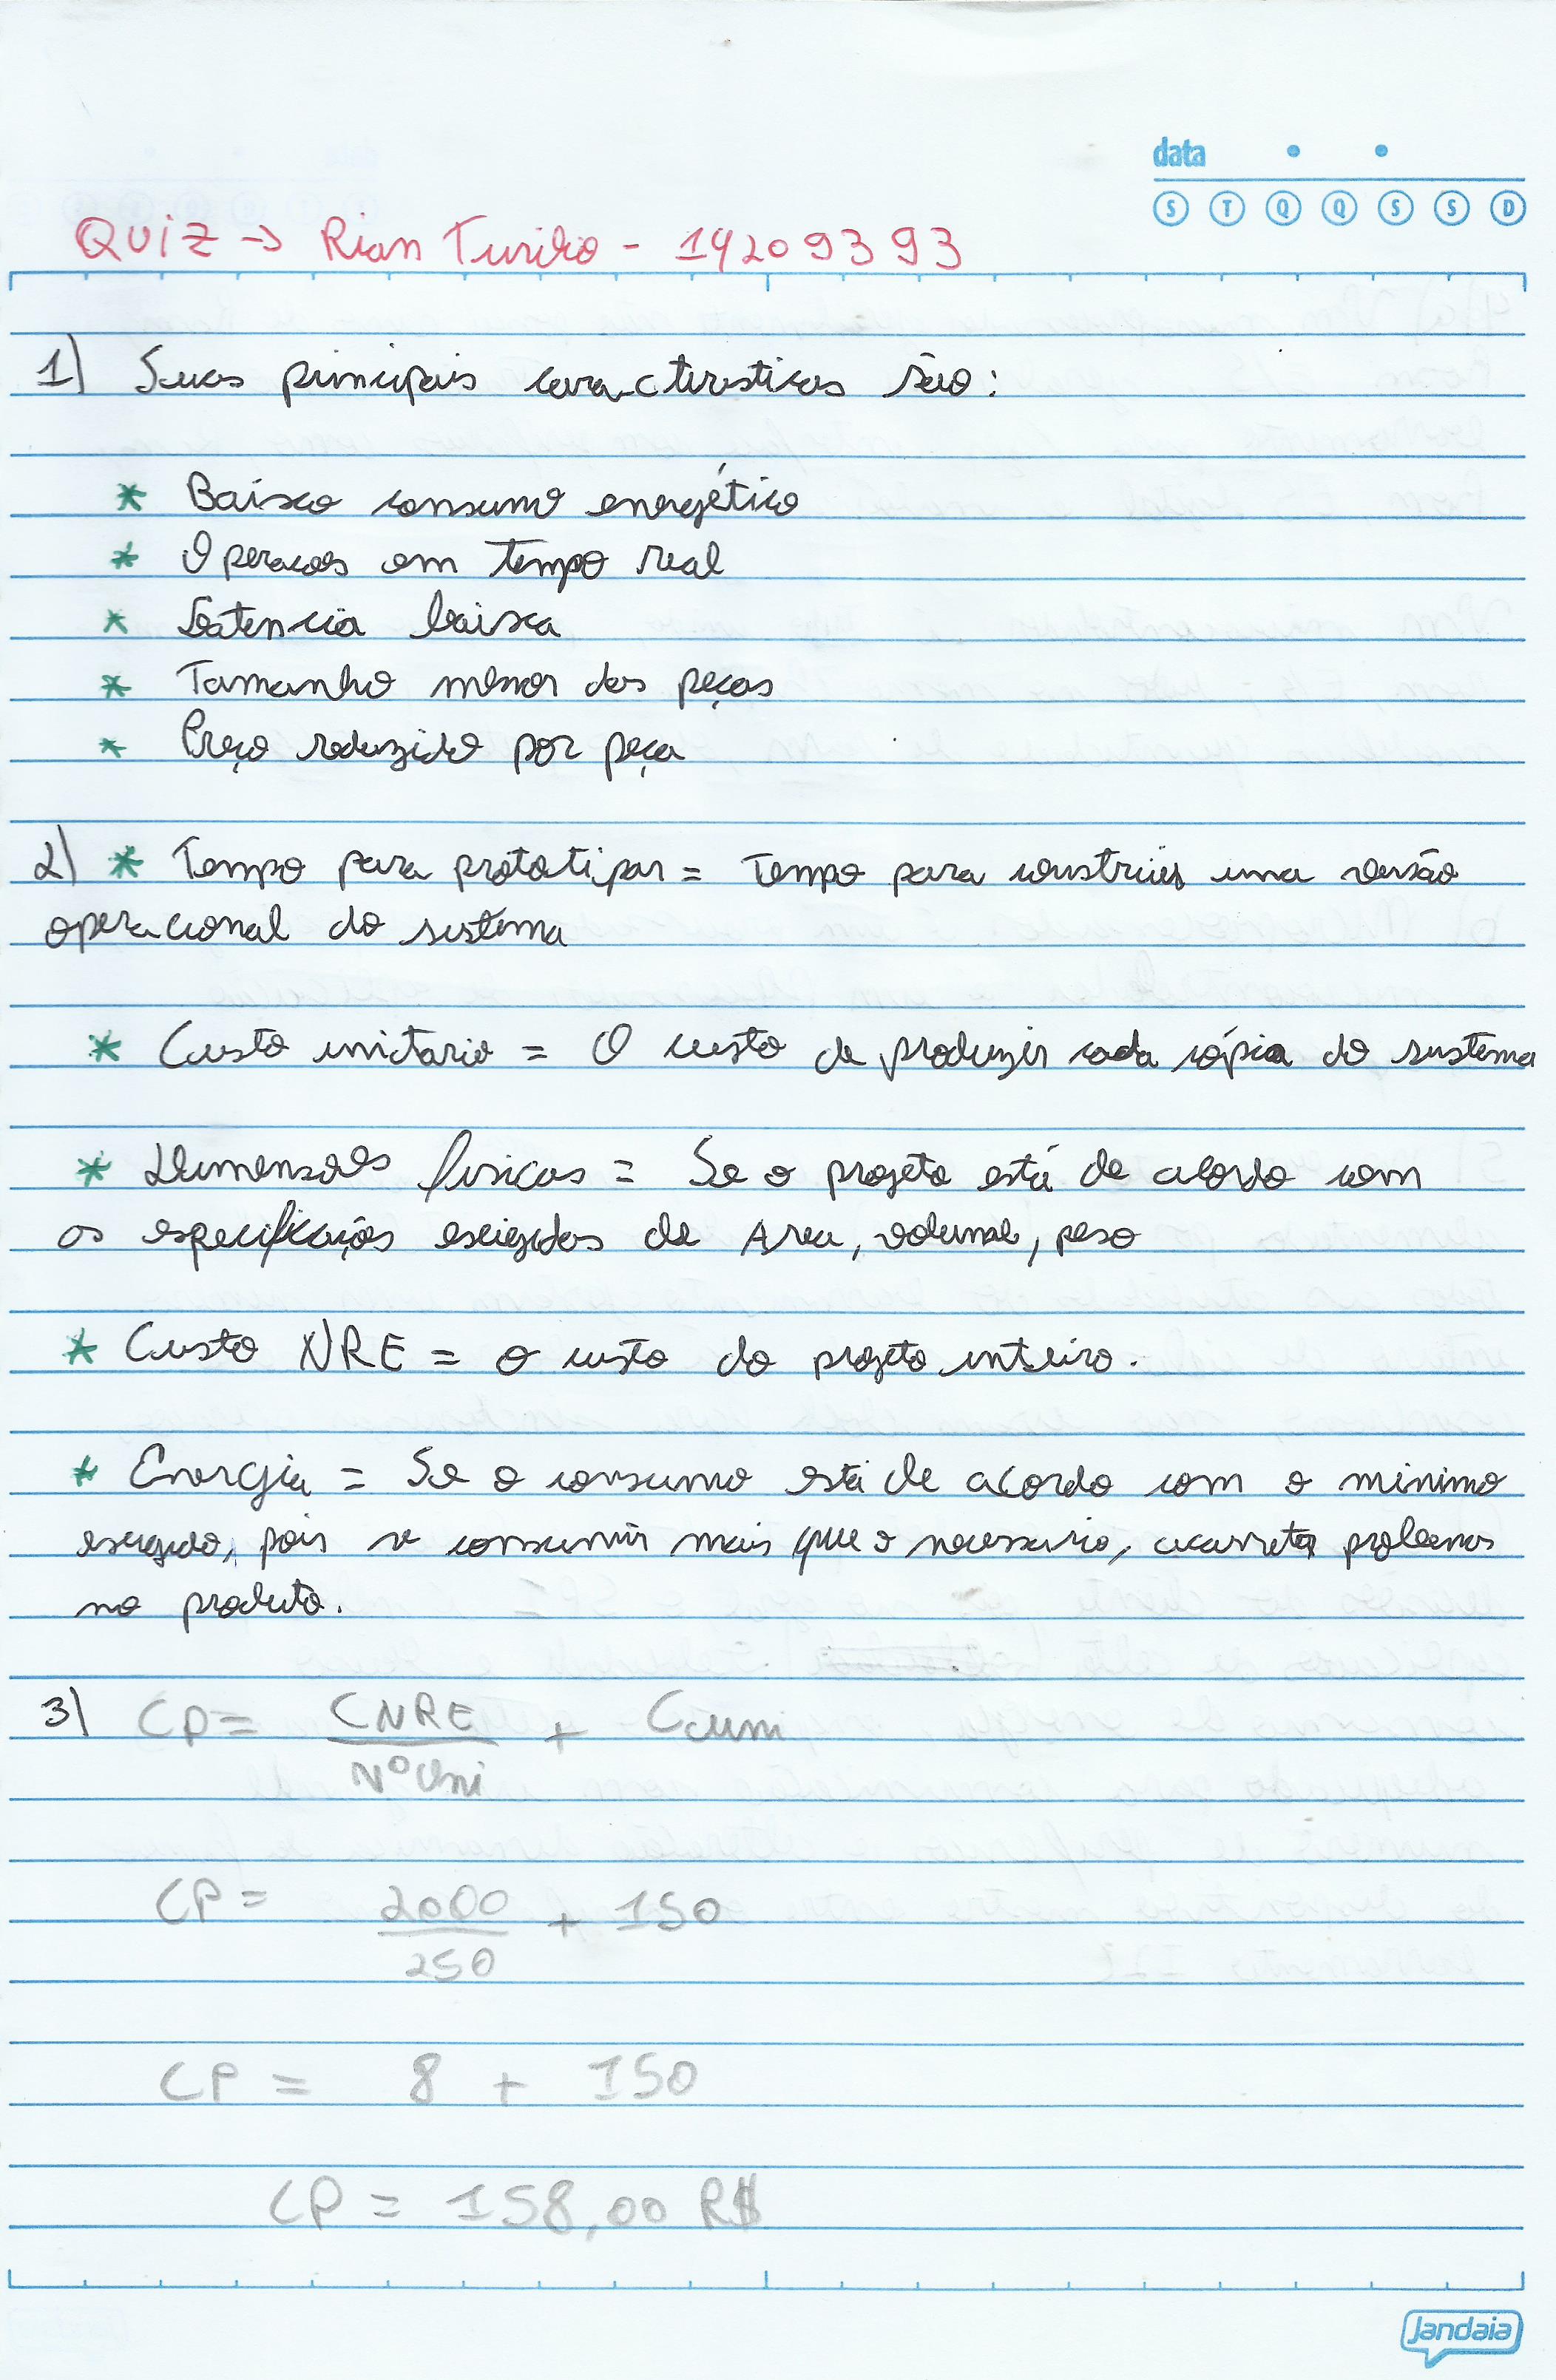 data
S T Q Q S S D
QUIZ → Rian Turibio - 14209393
1) Suas principais caracteristicas são:
* Baixo consumo energético
* Operacoes em tempo real
* Latencia baixa
* Tamanho menor das peças
* Preço reduzido por peça
2) * Tempo para prototipar = Tempo para construir uma versão
operacional do sistema
* Custo unitario = O custo de produzir cada cópia do sistema
* Dimensoes fisicas = Se o projeto está de acordo com
as especificações exigidas de Area, volume, peso
* Custo NRE = o custo do projeto inteiro.
* Energia = Se o consumo está de acordo com o minimo
exigido, pois se consumir mais que o necessario, acarreta problemas
no produto.
3) CP = CNRE / Nº Uni + Cuni
CP = 2000 / 250 + 150
CP = 8 + 150
CP = 158,00 R$
Jandaia